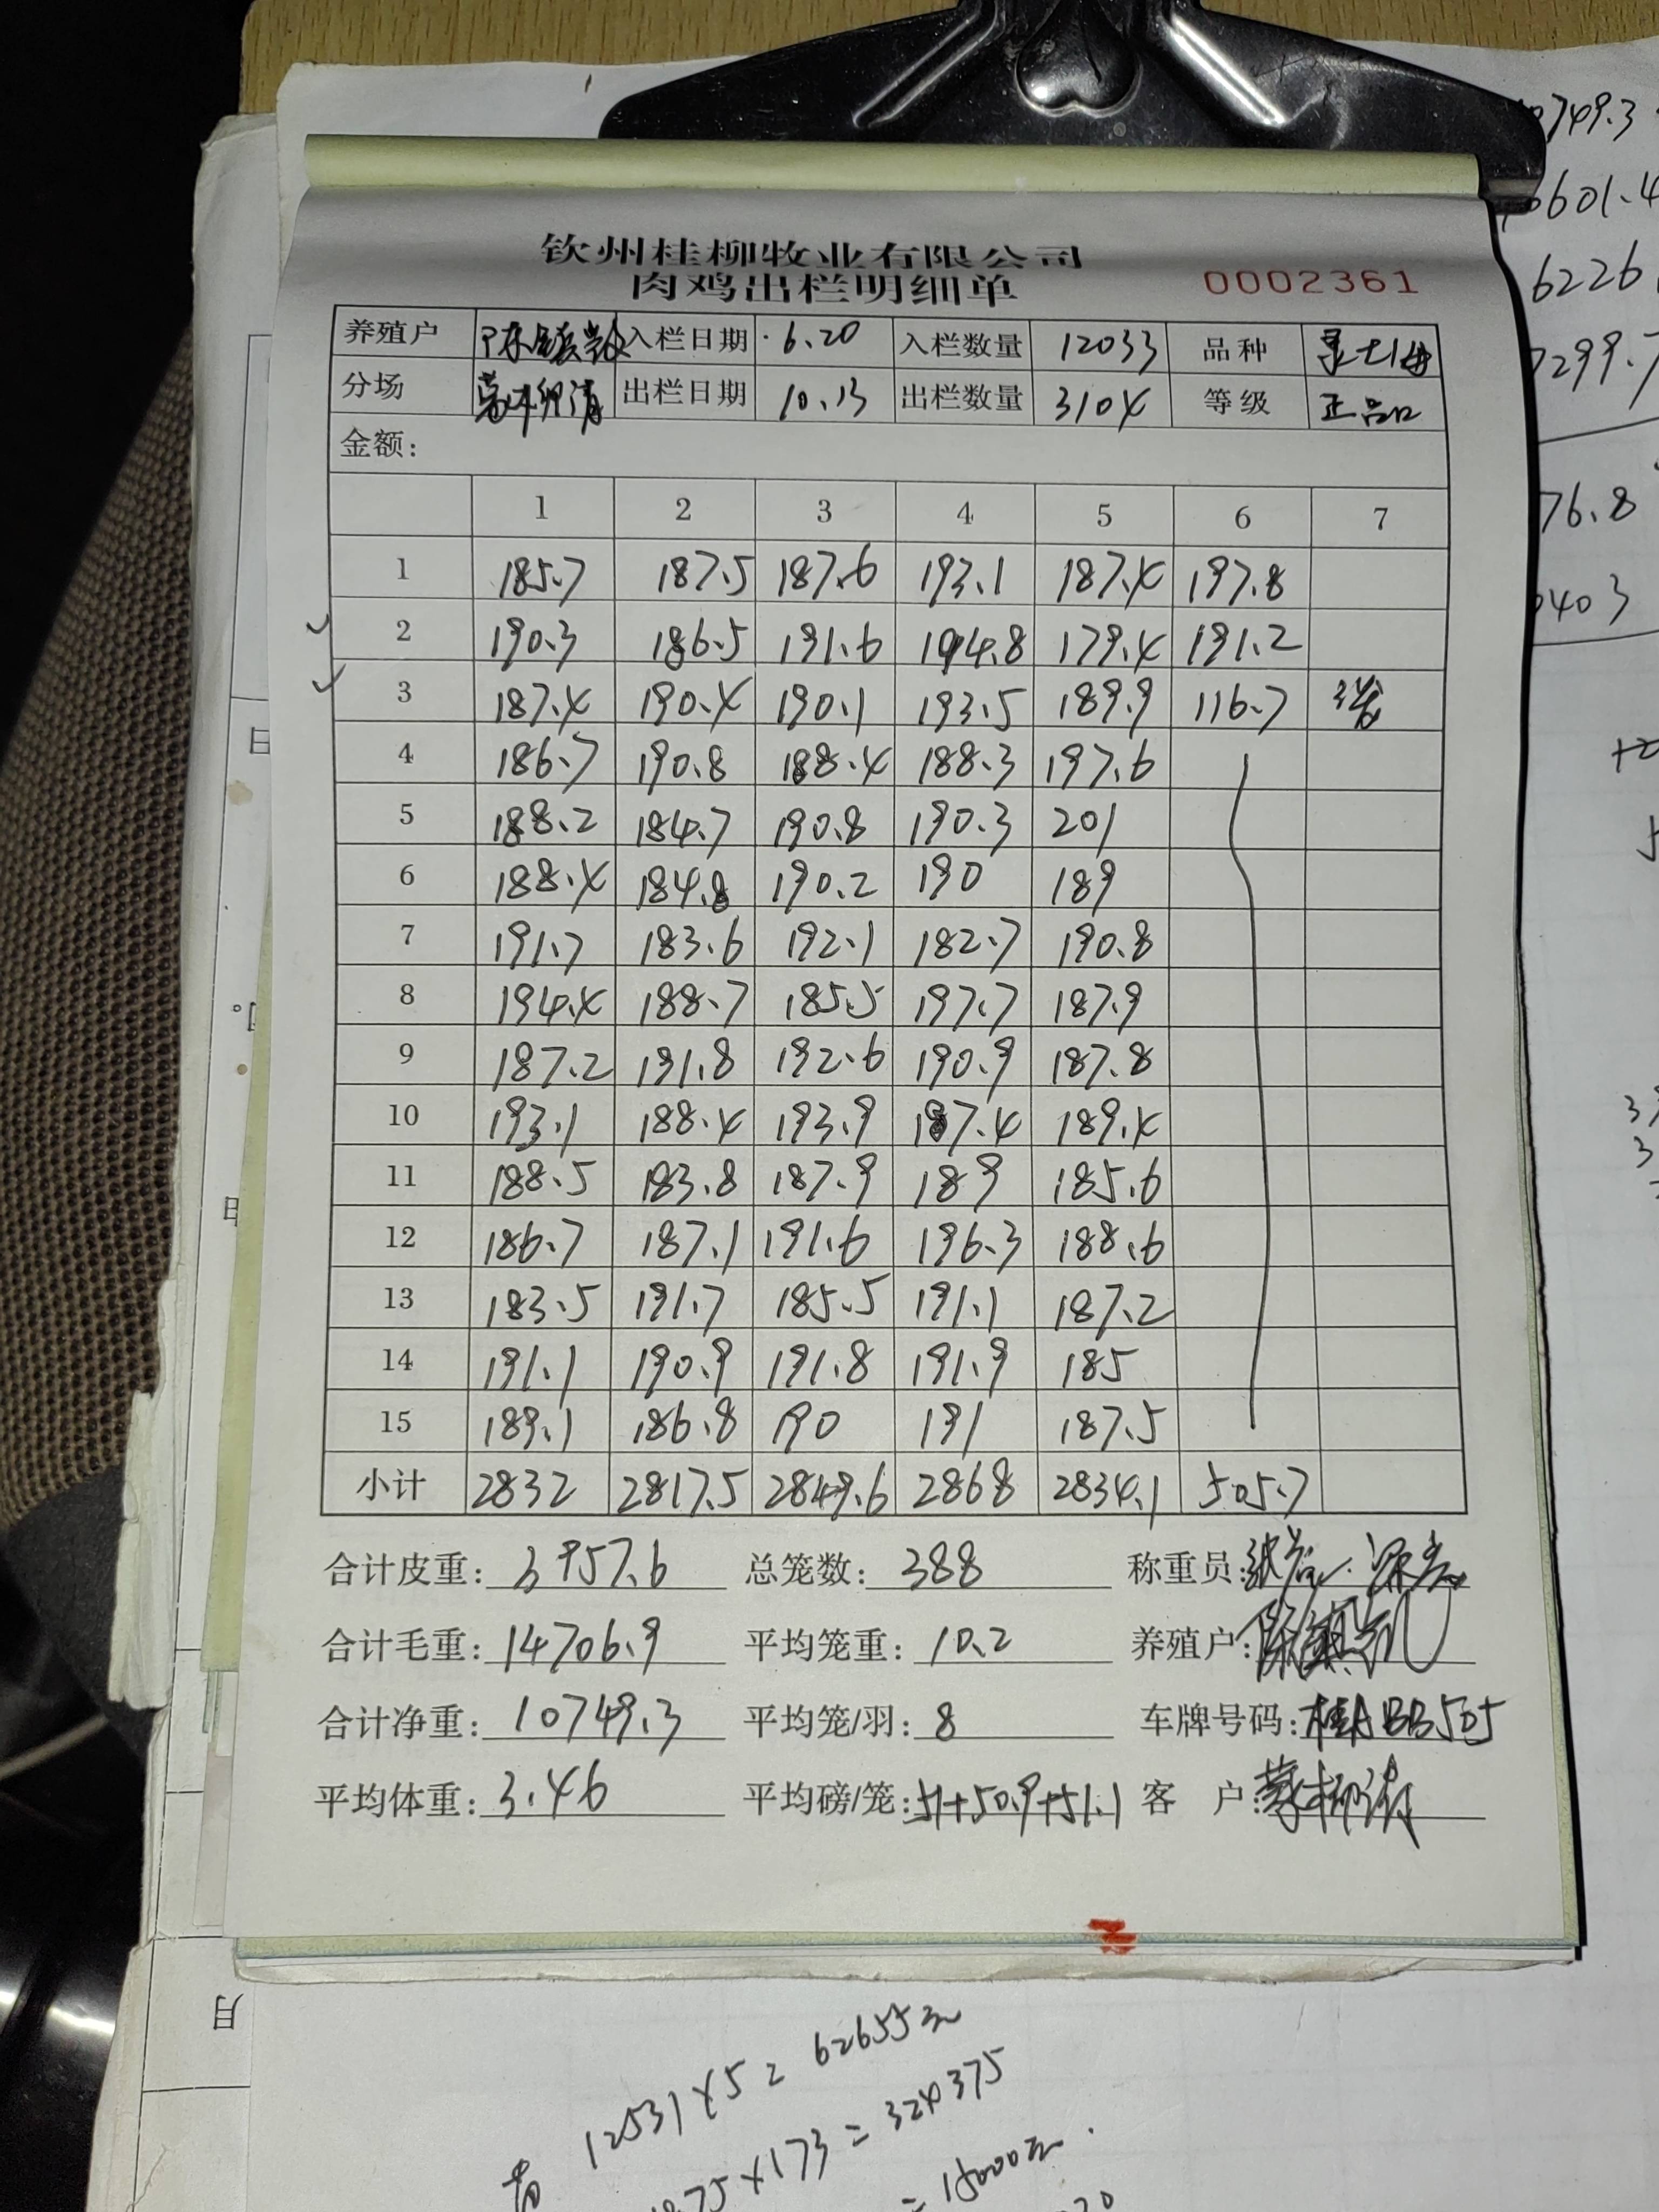 钦州桂柳牧业有限公司
肉鸡出栏明细单 0002361
养殖户 入栏日期 6.20 入栏数量 12033 品种
分场 出栏日期 10.13 出栏数量 3104 等级 正品
金额:
1 2 3 4 5 6 7
1 185.7 187.5 187.6 193.1 187.4 197.8
2 190.3 186.5 191.6 194.8 179.4 191.2
3 187.4 190.4 190.1 193.5 189.9 116.7
4 186.7 190.8 188.4 188.3 197.6
5 188.2 184.7 190.8 190.3 201
6 188.4 184.8 190.2 190 189
7 191.7 183.6 192.1 182.7 190.8
8 194.4 188.7 185.5 197.7 187.9
9 187.2 191.8 192.6 190.9 187.8
10 193.1 188.4 193.9 187.4 189.4
11 188.5 183.8 187.9 189 185.6
12 186.7 187.1 191.6 196.3 188.6
13 183.5 191.7 185.5 191.1 187.2
14 191.1 190.9 191.8 191.9 185
15 189.1 186.8 190 191 187.5
小计 2832 2817.5 2849.6 2868 2834.1 505.7
合计皮重: 3957.6 总笼数: 388 称重员:
合计毛重: 14706.9 平均笼重: 10.2 养殖户:
合计净重: 10749.3 平均笼/羽: 8 车牌号码: 桂A BB505
平均体重: 3.46 平均磅/笼: 51+50.9+51.1 客 户:
0749.3
6601.4
6226
299.7
76.8
0403
日
月
12531×5=62655元
75×173=324375
=15000元